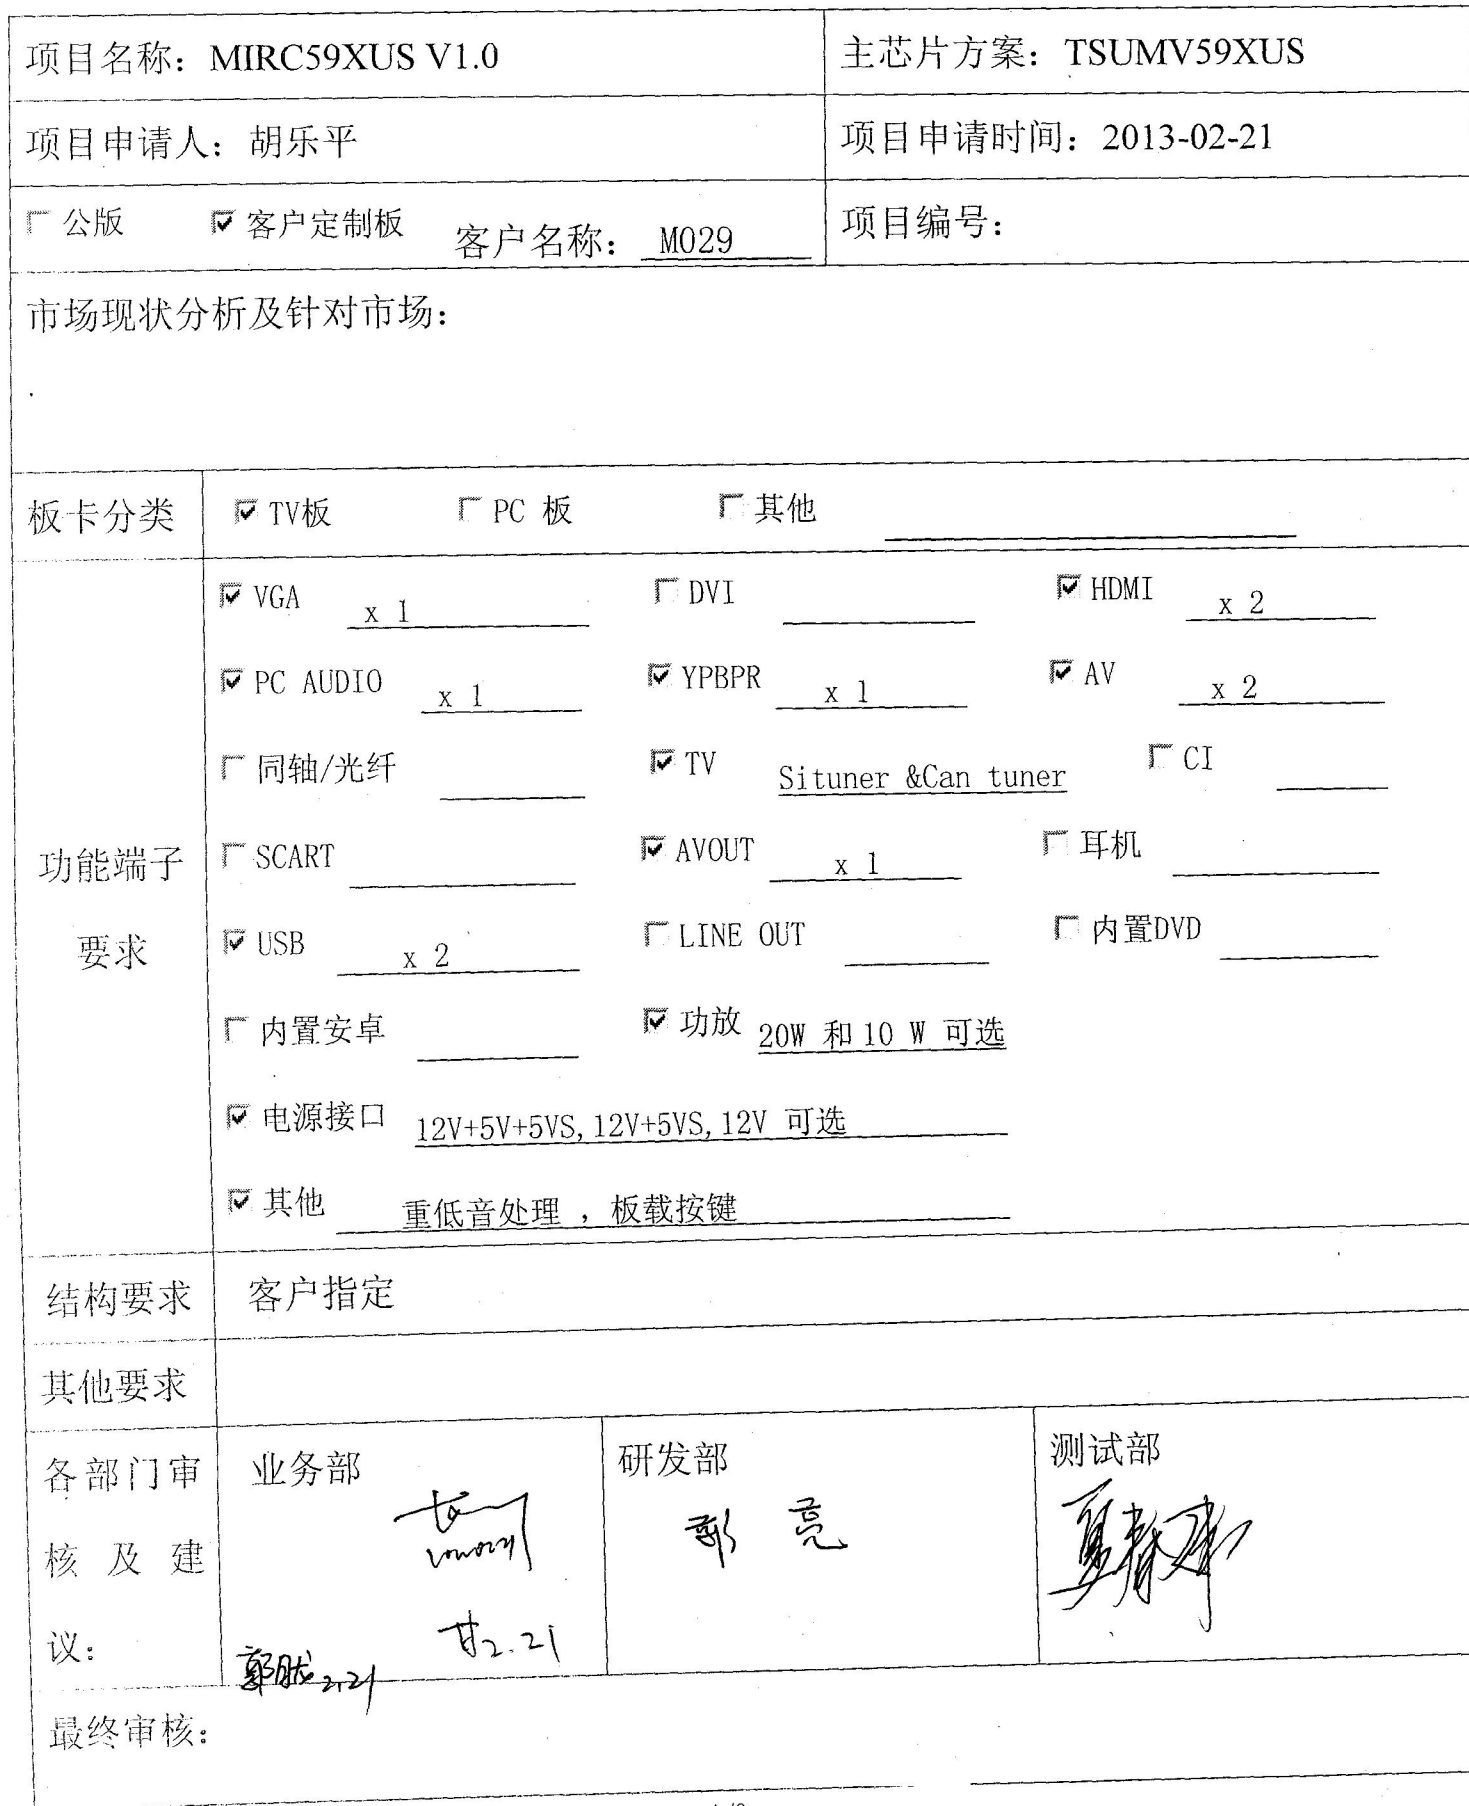 项目名称：MIRC59XUS V1.0 主芯片方案：TSUMV59XUS
项目申请人：胡乐平 项目申请时间：2013-02-21
公版 客户定制板 客户名称： M029 项目编号：
市场现状分析及针对市场：
板卡分类 TV板 PC 板 其他
VGA x 1 DVI HDMI x 2
PC AUDIO x 1 YPBPR x 1 AV x 2
同轴/光纤 TV Situner &Can tuner CI
功能端子 SCART AVOUT x 1 耳机
要求 USB x 2 LINE OUT 内置DVD
内置安卓 功放 20W 和 10 W 可选
电源接口 12V+5V+5VS,12V+5VS,12V 可选
其他 重低音处理 ，板载按键
结构要求 客户指定
其他要求
各部门审 业务部 研发部 测试部
核 及 建 亮
议： 2.21
2.21
最终审核：